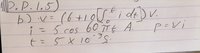 P.P.1.5)
b) v = (6 + 10 ∫₀ᵗ i dt) V.
i = 5 cos 60πt A p = vi
t = 5 x 10⁻³ s